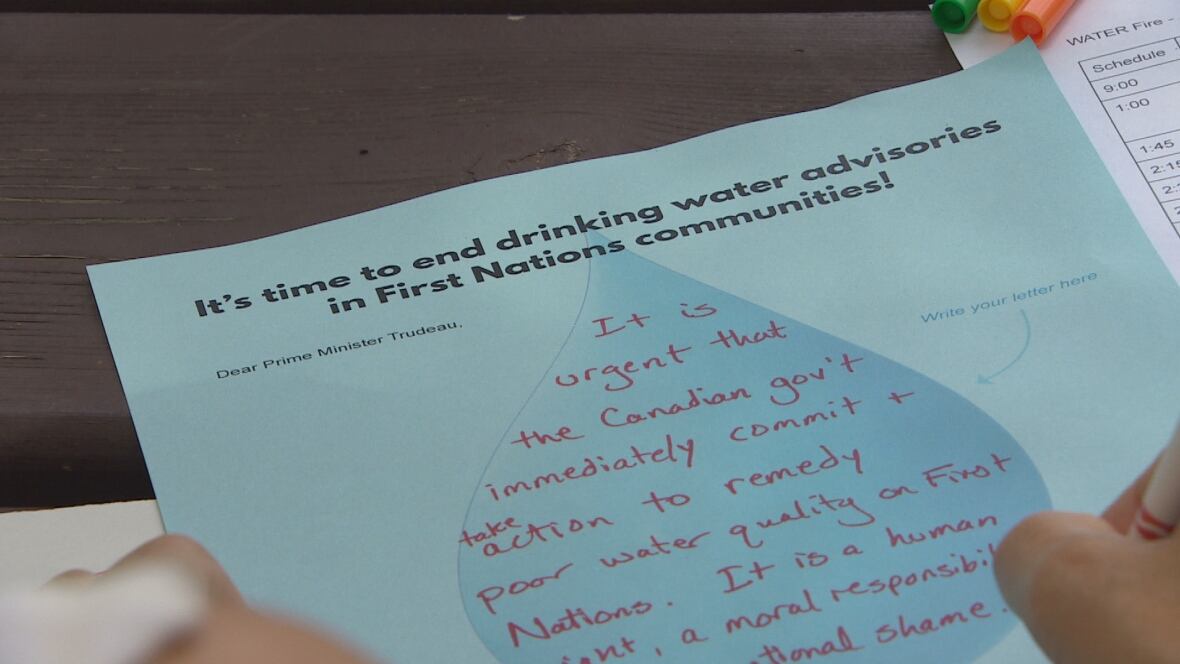 WATER Fire -
Schedule
9:00
1:00
1:45
It's time to end drinking water advisories
in First Nations communities!
Dear Prime Minister Trudeau,
Write your letter here
It is
urgent that
the Canadian gov't
immediately commit +
take
action to remedy
poor water quality on First
Nations. It is a human
, a moral
shame.